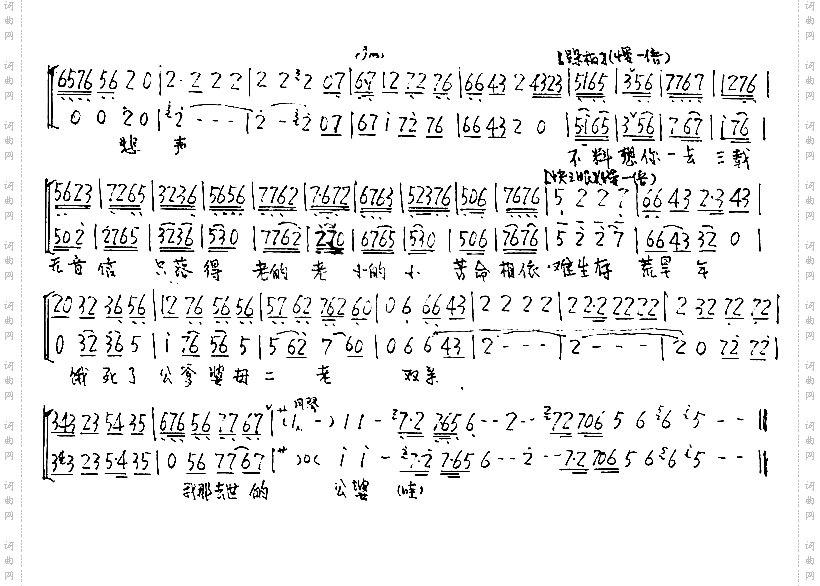 6576 56 2 0 | 2· 2 2 2 | 2 2 2 07 | 67 12 72 76 | 66 43 2 4323 | 5165 | 356 | 7767 | 1276 |
0 0 2 0 | 2 - - - | 2 - 2 07 | 67 i 72 76 | 66 43 2 0 | 5165 | 356 | 767 | i76 |
悲 声 不料想你一去三载
5623 | 7265 | 3236 | 5656 | 7762 | 7·672 | 6763 | 52376 | 506 | 7676 | 5 2 2 7 | 66 43 2·3 43 |
502 | 2765 | 3236 | 530 | 7762 | 270 | 6765 | 530 | 506 | 7676 | 5 2 2 7 | 66 43 32 0 |
无音信 只落得 老的老 小的小 苦命相依 难生存 荒旱年
20 32 36 56 | 12 76 56 56 | 57 62 762 60 | 0 6 66 43 | 2 2 2 2 | 2 2·2 22 22 | 2 32 72 72 |
0 32 36 5 | i 76 56 5 | 5 62 7 60 | 0 6 6 43 | 2 - - - | 2 - - - | 2 0 72 72 |
饿死了公爹婆母二 老 双亲
343 23 54 35 | 676 56 77 67 | 1 1 - 7·2 7656 - - 2 - - 72 706 5 6 6 5 - - ‖
343 23 5·4 35 | 0 56 77 67 | i i - 7·2 7·65 6 - - 2 - - 7·2 706 5 6 6 5 - - ‖
我那去世的 公婆 (哇)
词曲网